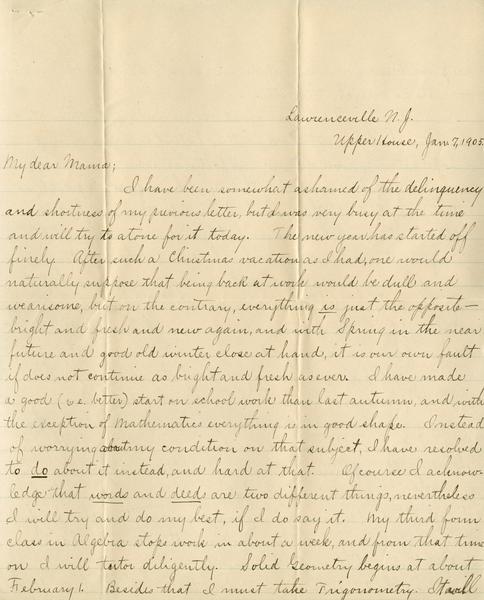 Lawrenceville N. J.
Upper House, Jan. 7, 1905.
My dear Mama;
I have been somewhat ashamed of the delinquency
and shortness of my previous letter, but I was very busy at the time
and will try to atone for it today. The new year has started off
finely. After such a Christmas vacation as I had, one would
naturally suppose that being back at work would be dull and
wearisome, but on the contrary, everything is just the opposite—
bright and fresh and new again, and with Spring in the near
future and good old winter close at hand, it is our own fault
if does not continue as bright and fresh as ever. I have made
a good (i.e. better) start on school work than last autumn, and with
the exception of Mathematics everything is in good shape. Instead
of worrying about my condition on that subject, I have resolved
to do about it instead, and hard at that. Of course I acknow-
ledge that words and deeds are two different things, nevertheless
I will try and do my best, if I do say it. My third form
class in Algebra stops work in about a week, and from that time
on I will tutor diligently. Solid Geometry begins at about
February 1. Besides that I must take Trigonometry. It will